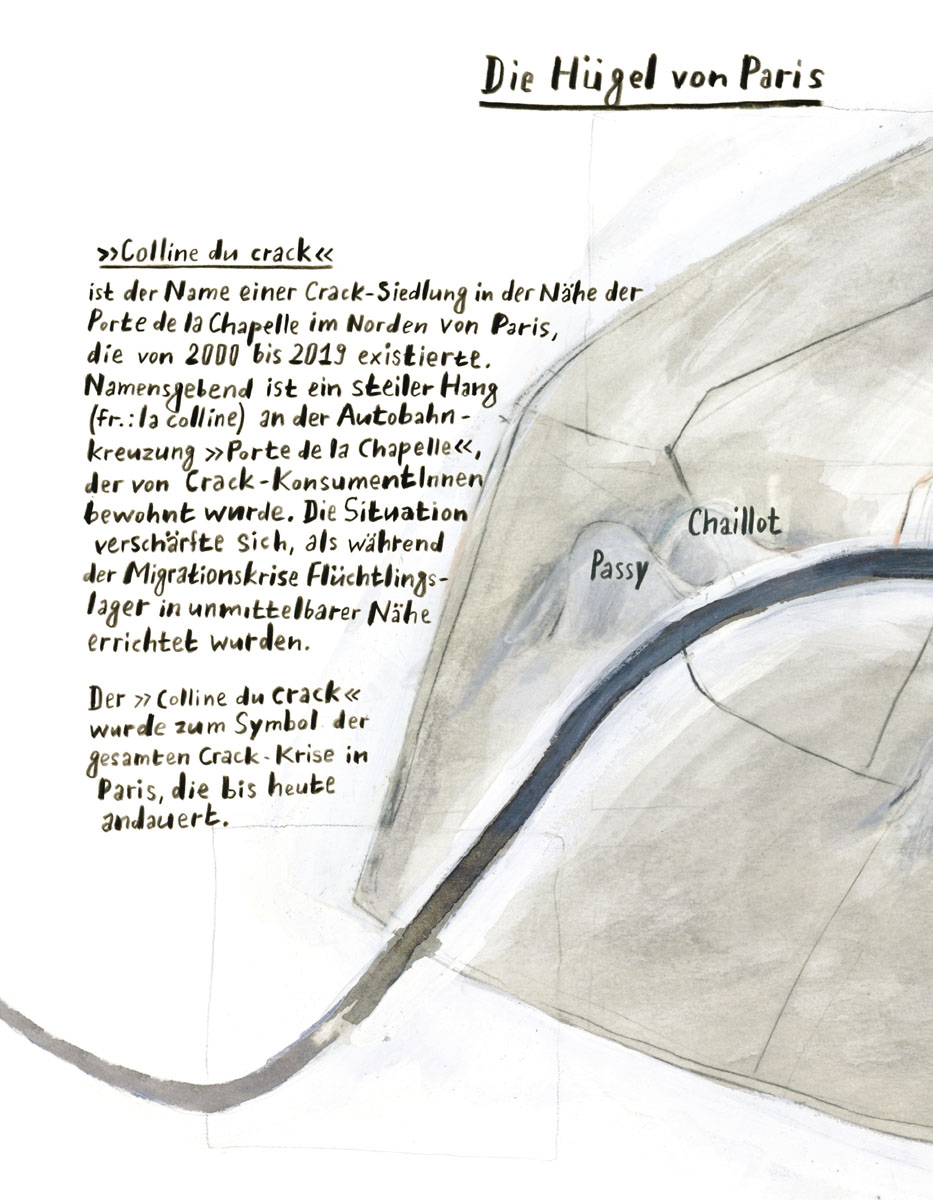 Die Hügel von Paris
»Colline du crack«
ist der Name einer Crack-Siedlung in der Nähe der
Porte de la Chapelle im Norden von Paris,
die von 2000 bis 2019 existierte.
Namensgebend ist ein steiler Hang
(fr.: la colline) an der Autobahn-
kreuzung »Porte de la Chapelle«,
der von Crack-KonsumentInnen
bewohnt wurde. Die Situation
verschärfte sich, als während
der Migrationskrise Flüchtlings-
lager in unmittelbarer Nähe
errichtet wurden.
Der »Colline du crack«
wurde zum Symbol der
gesamten Crack-Krise in
Paris, die bis heute
andauert.
Chaillot
Passy